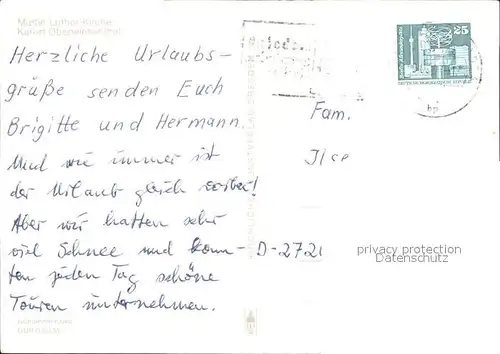 Martin Luther Kirche
Kurort Oberwiesenthal
Herzliche Urlaubs-
grüße senden Euch
Brigitte und Hermann.
Und wie immer ist
der Urlaub gleich vorbei!
Aber wir hatten sehr
viel Schnee und konn-
ten jeden Tag schöne
Touren unternehmen.
25
Fam.
Ilse
D-2721
privacy protection
Datenschutz